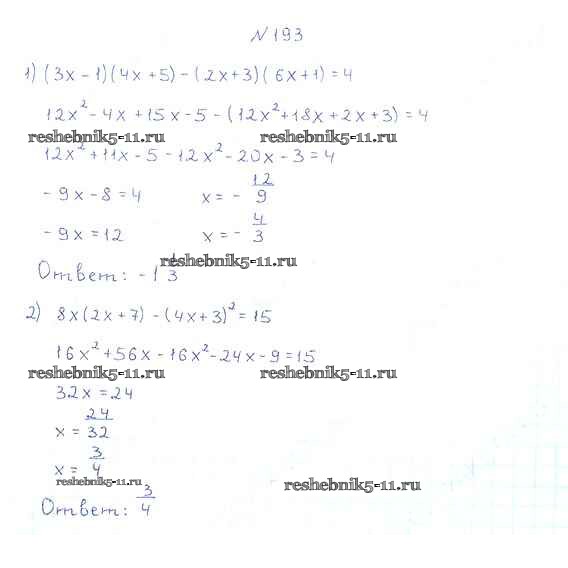 №193
1) (3x-1)(4x+5)-(2x+3)(6x+1)=4
12x²-4x+15x-5-(12x²+18x+2x+3)=4
reshebnik5-11.ru reshebnik5-11.ru
12x²+11x-5-12x²-20x-3=4
-9x-8=4 x=-12/9
-9x=12 x=-4/3
reshebnik5-11.ru
Ответ: -1 1/3
2) 8x(2x+7)-(4x+3)²=15
16x²+56x-16x²-24x-9=15
reshebnik5-11.ru reshebnik5-11.ru
32x=24
x=24/32
x=3/4
reshebnik5-11.ru reshebnik5-11.ru
Ответ: 3/4